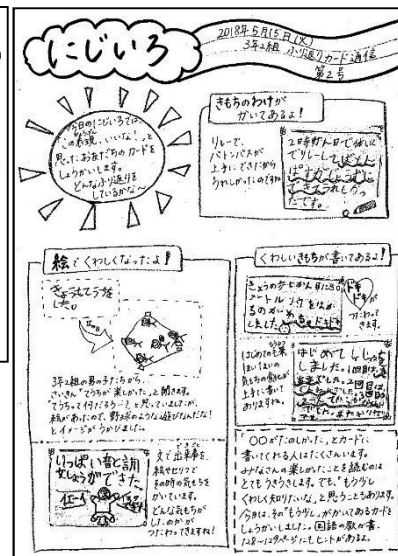 にじいろ
2018年5月15日(火)
3年2組 ふり返りカード通信
第2号
今日のにじいろでは、
「この表現、いいな!」と
思ったお友だちのカードを
しょうかいします。
どんなふり返りを
しているかな〜
きもちのわけが
かいてあるよ!
リレーで、
バトンパスが
上手にできたから
うれしかったのですね
絵でくわしくなったよ!
きょうもてうちを
した。
3年2組の男の子たちから、
さいきん「てうちが楽しかった」と聞きます。
「てうちって何だろう…」と思っていましたが、
絵があったので、野球のような遊びなんだな!
とイメージがうかびました。
いっぱい音と訓
しょうができた
文で出来事を、
絵やセリフで
その時の気もちを
かいています。
どんな気もちが
したのかが
つたわってきますね!
くわしいきもちが書いてあるよ!
ドキドキが
つたわって
きます。
はじめての
気もちの
上手に書いて
ありますね。
はじめて
しました。
「〇〇がたのしかった」とカードに
書いてくれる人はたくさんいます。
みなさんの楽しかったことを読むのは
とてもうきうきします。でも、「もう少し
くわしく知りたいな」と思うこともあります。
今日は、その「もう少し」がかいてあるカードを
しょうかいしました。国語の教か書
128〜129ページにもヒントがあるよ。